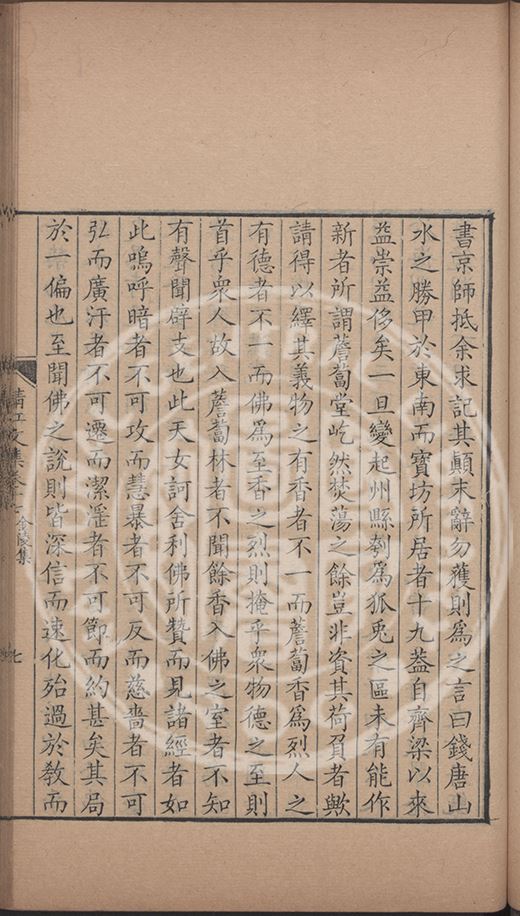 書京師抵余求記其顛末辭勿獲則為之言曰錢唐山
水之勝甲於東南而寶坊所居者十九葢自齊梁以來
益崇益侈矣一旦變起州縣刳為狐兎之區未有能作
新者所謂薝蔔堂屹然焚蕩之餘豈非資其荷負者歟
請得以繹其義物之有香者不一而薝蔔香為烈人之
有德者不一而佛為至香之烈則掩乎衆物德之至則
首乎衆人故入薝蔔林者不聞餘香入佛之室者不知
有聲聞辟支也此天女訶舍利佛所贊而見諸經者如
此嗚呼暗者不可攻而慧暴者不可反而慈嗇者不可
弘而廣汙者不可遷而潔淫者不可節而約甚矣其局
於一偏也至聞佛之說則皆深信而速化殆過於敎而
清江文集卷十七 金陵集
七